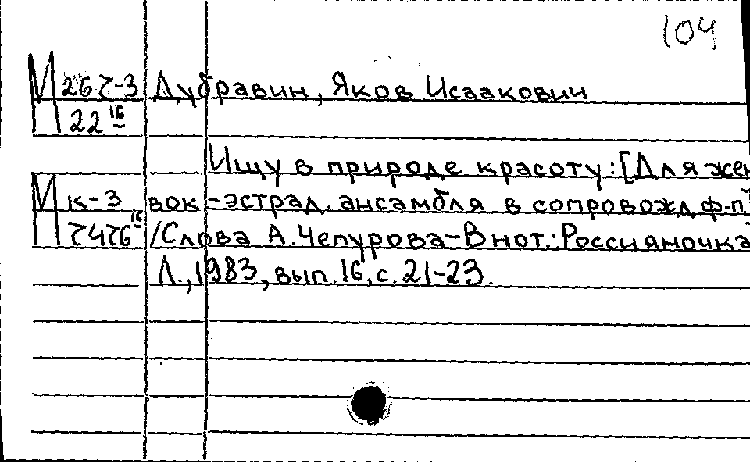 104
М 26 2-3 Дубравин, Яков Исаакович
П 22 16
Ищу в природе красоту: [Для жен
М к-3 вок-эстрад. ансамбля в сопровожд. ф-п]
П 2426 16 /Слова А. Чепурова - В нот.: Россияночка
Л., 1983, вып. 16, с. 21-23.